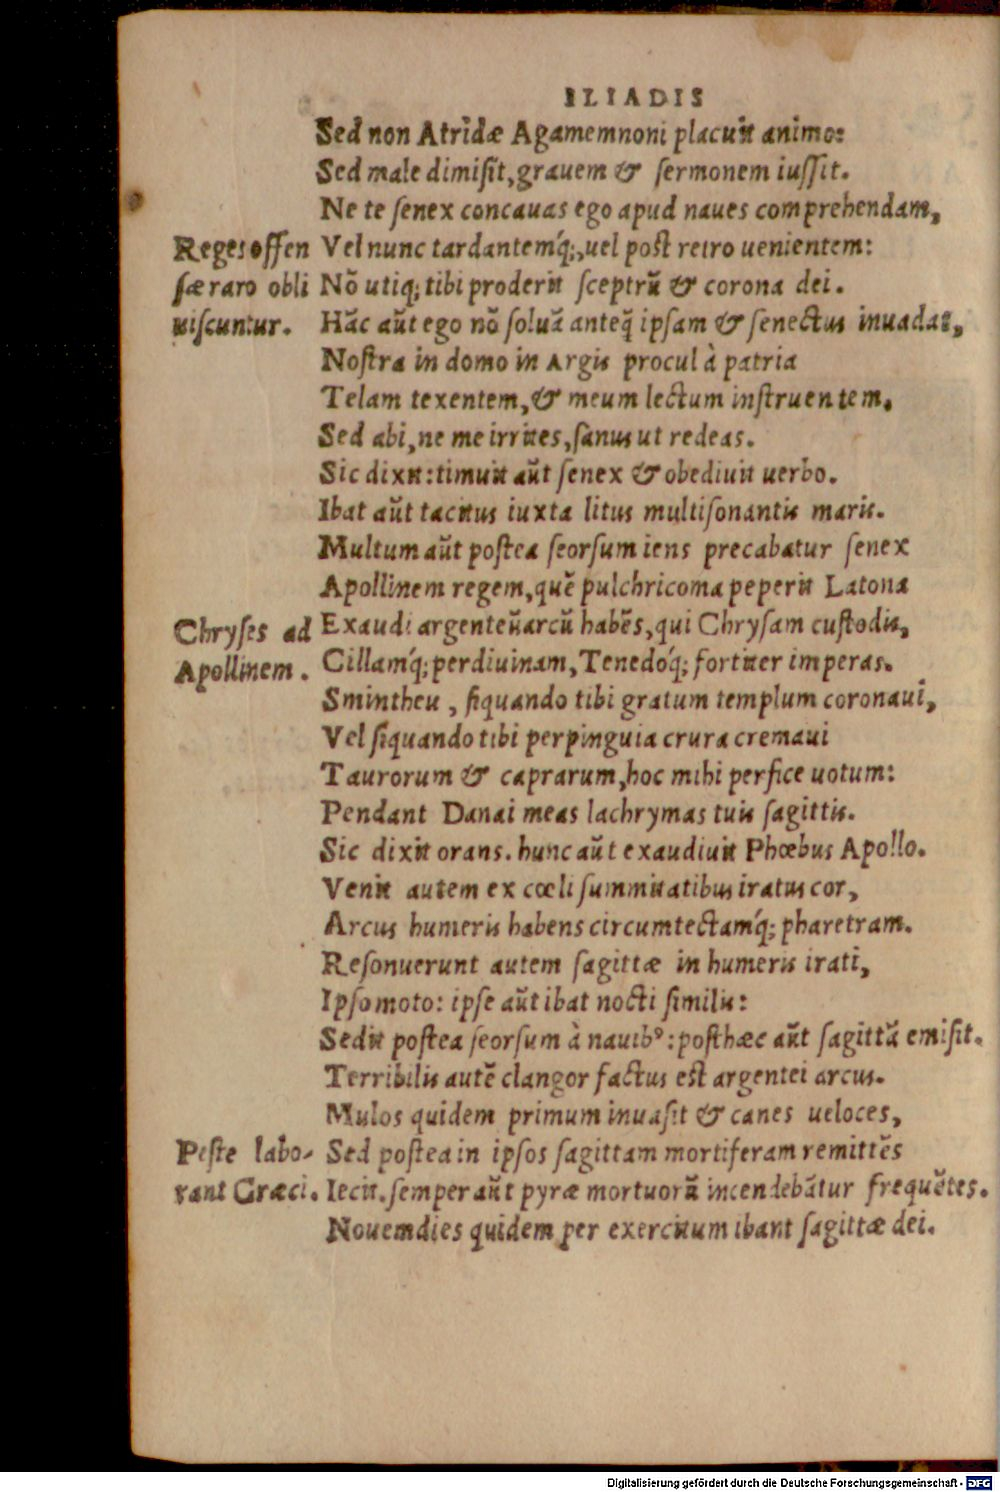 ILIADIS
Sed non Atridæ Agamemnoni placuit animo:
Sed male dimiſit, grauem & ſermonem iuſſit.
Ne te ſenex concauas ego apud naues comprehendam,
Reges offen
Vel nunc tardantemq́;, uel poſt retro uenientem:
ſæ raro obli
Nō utiq; tibi proderit ſceptrū & corona dei.
uiſcuntur.
Hāc aūt ego nō ſoluā anteq̄ ipſam & ſenectus inuadat,
Noſtra in domo in Argis procul à patria
Telam texentem, & meum lectum inſtruentem.
Sed abi, ne me irrites, ſanus ut redeas.
Sic dixit: timuit aūt ſenex & obediuit uerbo.
Ibat aūt tacitus iuxta litus multiſonantis maris.
Multum aūt poſtea ſeorſum iens precabatur ſenex
Apollinem regem, quē pulchricoma peperit Latona
Chryſes ad
Exaudi argenteūarcū habēs, qui Chryſam cuſtodis,
Apollinem.
Cillamq́; perdiuinam, Tenedoq́; fortiter imperas.
Smintheu, ſiquando tibi gratum templum coronaui,
Vel ſiquando tibi perpinguia crura cremaui
Taurorum & caprarum, hoc mihi perfice uotum:
Pendant Danai meas lachrymas tuis ſagittis.
Sic dixit orans. hunc aūt exaudiuit Phœbus Apollo.
Venit autem ex cœli ſummitatibus iratus cor,
Arcus humeris habens circumtectamq́; pharetram.
Reſonuerunt autem ſagittæ in humeris irati,
Ipſo moto: ipſe aūt ibat nocti ſimilis:
Sedit poſtea ſeorſum à nauibꝰ: poſthæc aūt ſagittā emiſit.
Terribilis autē clangor factus eſt argentei arcus.
Mulos quidem primum inuaſit & canes ueloces,
Peſte labo-
Sed poſtea in ipſos ſagittam mortiferam remittēs
rant Græci.
Iecit. ſemper aūt pyræ mortuorū incendebātur frequētes.
Nouemdies quidem per exercitum ibant ſagittæ dei.
Digitalisierung gefördert durch die Deutsche Forschungsgemeinschaft - DFG